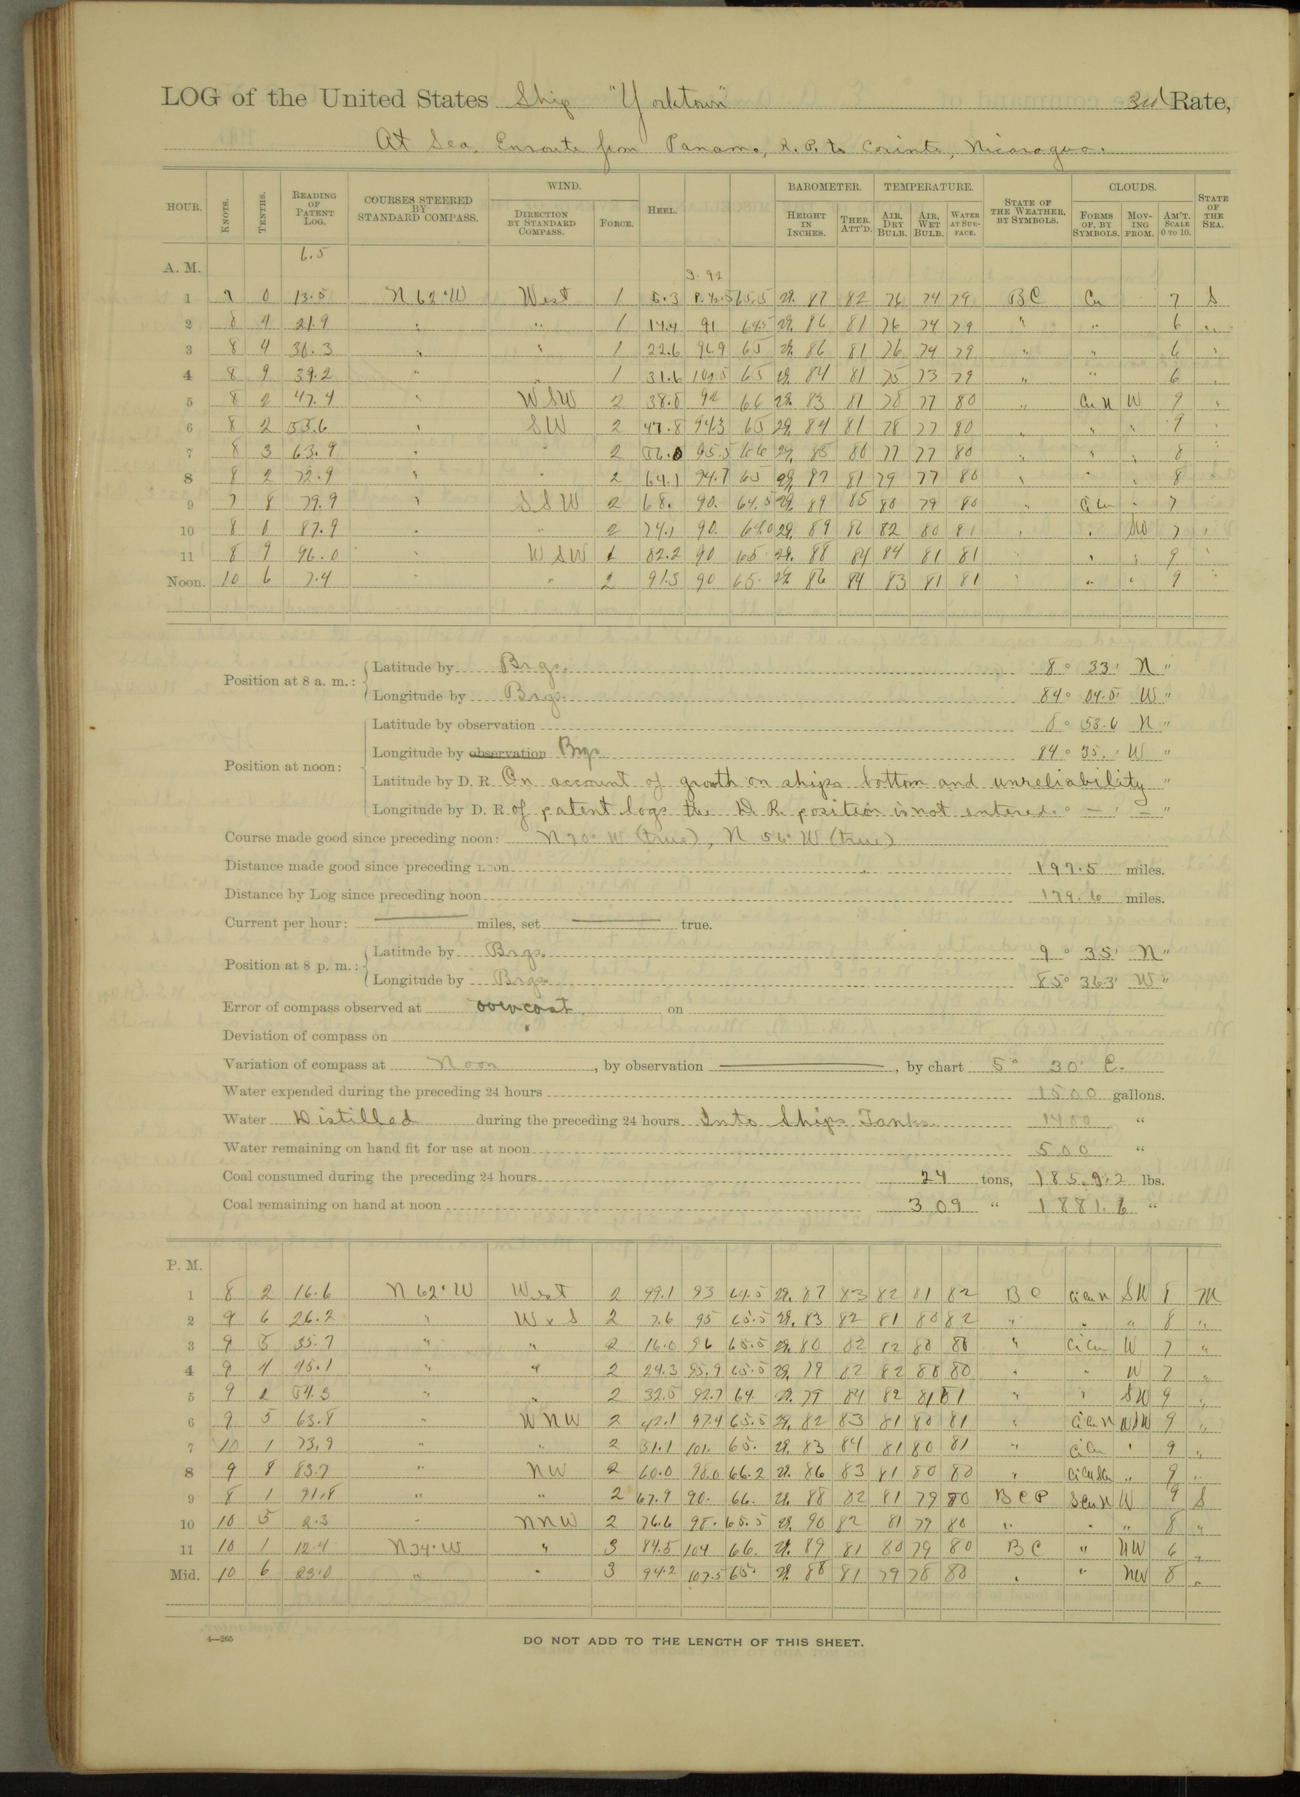 LOG of the United States Ship "Yorktown" 3rd Rate,
At Sea, Enroute from Panama, R. P. to Corinto, Nicaragua.
HOUR. KNOTS. TENTHS. READING OF PATENT LOG. COURSES STEERED BY STANDARD COMPASS. WIND. DIRECTION BY STANDARD COMPASS. FORCE. HEEL. BAROMETER. HEIGHT IN INCHES. THER. ATT'D. TEMPERATURE. AIR, DRY BULB. AIR, WET BULB. WATER AT SURFACE. STATE OF THE WEATHER, BY SYMBOLS. CLOUDS. FORMS OF, BY SYMBOLS. MOVING FROM. AM'T. SCALE 0 TO 10. STATE OF THE SEA.
A. M. 6.5 3.92
1 7 0 13.5 N 62° W West 1 5.3 65.5 29. 87 82 76 74 79 BC Cu 7 S
2 8 4 21.9 " " 1 14.4 91 64.5 29. 86 81 76 74 79 " " 6 "
3 8 4 30.3 " " 1 22.6 96.9 65 29. 86 81 76 74 79 " " 6 "
4 8 9 39.2 " " 1 31.6 102.5 65 29. 84 81 75 73 79 " " 6 "
5 8 2 47.4 " WSW 2 38.8 92 66 29. 83 81 78 77 80 " CuN W 9 "
6 8 2 55.6 " SW 2 47.8 94.3 65 29. 84 81 78 77 80 " " " 9 "
7 8 3 63.9 " " 2 56.0 95.5 66 29. 85 80 77 77 80 " " " 8 "
8 8 2 72.9 " " 2 64.1 94.7 65 29. 87 81 79 77 80 " " 8 "
9 7 8 79.9 " SSW 2 68. 90. 64.5 29. 89 85 80 79 80 " CiCu " 7 "
10 8 0 87.9 " " 2 74.1 90. 64.0 29. 89 86 82 80 81 " " SW 7 "
11 8 9 96.0 " WSW 1 82.2 90 65 29. 88 84 84 81 81 " " " 9 "
Noon. 10 6 7.4 " " 2 91.3 90 65. 29. 86 84 83 81 81 " " " 9 "
Position at 8 a. m.: Latitude by Brgs. 8° 33' N "
Longitude by Brgs. 84° 04.5' W "
Position at noon: Latitude by observation 8° 53.6 N "
Longitude by observation Brgs 84° 35.' W "
Latitude by D. R. On account of growth on ships bottom and unreliability "
Longitude by D. R. of patent logs the D. R. position is not entered. ° — ' — "
Course made good since preceding noon: N 70° W (true), N 56° W (true)
Distance made good since preceding noon 197.5 miles.
Distance by Log since preceding noon 179.6 miles.
Current per hour: miles, set true.
Position at 8 p. m.: Latitude by Brgs. 9° 35' N "
Longitude by Brgs. 85° 36.3' W "
Error of compass observed at overcast on
Deviation of compass on
Variation of compass at Noon, by observation, by chart 5° 30' E.
Water expended during the preceding 24 hours 1500 gallons.
Water Distilled during the preceding 24 hours Into Ships Tanks 1400 "
Water remaining on hand fit for use at noon 500 "
Coal consumed during the preceding 24 hours 24 tons, 1859.2 lbs.
Coal remaining on hand at noon 309 " 1881.6 "
P. M.
1 8 2 16.6 N 62° W West 2 99.1 93 64.5 29. 87 83 82 81 82 BC CiCuN SW 8 M
2 9 6 26.2 " W x S 2 7.6 95 65.5 29. 83 82 81 80 82 " " " 8 "
3 9 5 35.7 " " 2 16.0 96 65.5 29. 80 82 82 80 80 " CiCu W 7 "
4 9 4 45.1 " " 2 24.3 95.9 65.5 29. 79 82 82 80 80 " " W 7 "
5 9 2 54.3 " " 2 32.5 92.7 64. 29. 79 84 82 81 81 " " SW 9 "
6 9 5 63.8 " WNW 2 42.1 97.4 65.5 29. 82 83 81 80 81 " CiCuN WSW 9 "
7 10 1 73.9 " " 2 51.1 101. 65. 29. 83 84 81 80 81 " CiCu " 9 "
8 9 8 83.7 " NW 2 60.0 98.0 66.2 29. 86 83 81 80 80 " " 9 "
9 8 1 91.8 " " 2 67.9 90. 66. 29. 88 82 81 79 80 BCP SCuN W 9 S
10 10 5 2.3 " NNW 2 76.6 98. 65.5 29. 90 82 81 79 80 " " " 8 "
11 10 1 12.4 N 34° W " 3 84.5 104 66. 29. 89 81 80 79 80 BC " NW 6 "
Mid. 10 6 23.0 " " 3 94.2 107.5 65. 29. 88 81 79 78 80 " " NW 8 "
4—265
DO NOT ADD TO THE LENGTH OF THIS SHEET.